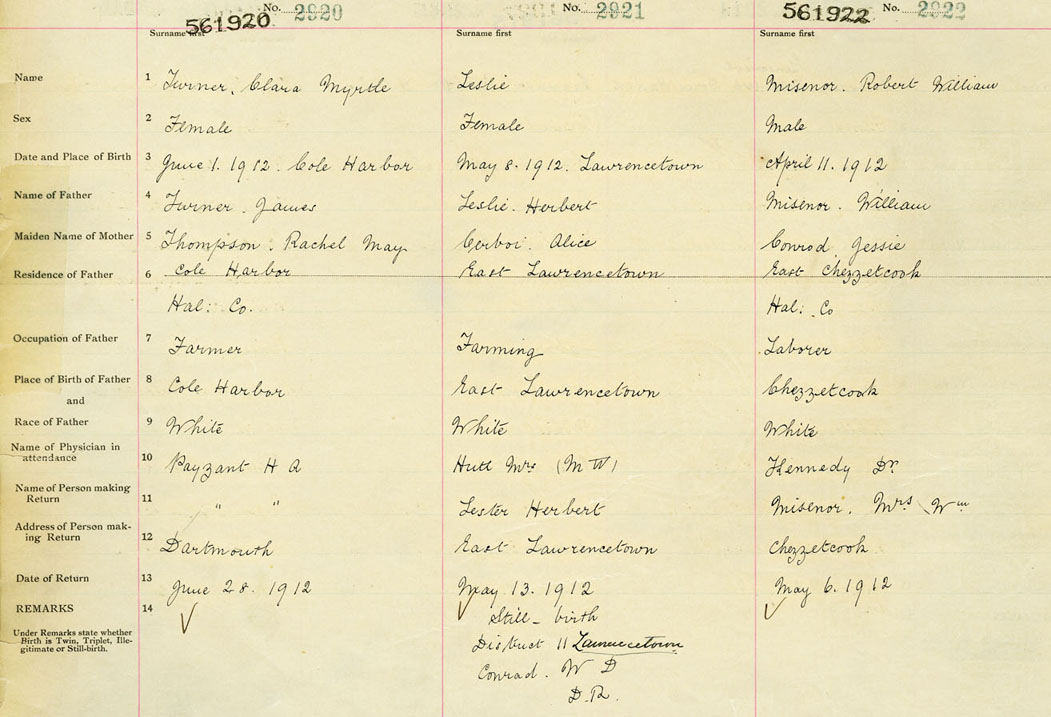 No. 2920 No. 2921 No. 2922
561920 561922
Surname first Surname first Surname first
Name 1 Turner, Clara Myrtle Leslie Misenor. Robert William
Sex 2 Female Female Male
Date and Place of Birth 3 June 1. 1912. Cole Harbor May 8. 1912. Lawrencetown April 11. 1912
Name of Father 4 Turner. James Leslie. Herbert Misenor. William
Maiden Name of Mother 5 Thompson. Rachel May Alice Conrod Jessie
Residence of Father 6 Cole Harbor East Lawrencetown East Chezzetcook
Hal: Co. Hal: Co
Occupation of Father 7 Farmer Farming Laborer
Place of Birth of Father 8 Cole Harbor East Lawrencetown Chezzetcook
and
Race of Father 9 White White White
Name of Physician in
attendance 10 Payzant H A Hutt Mrs (M W) Kennedy Dr.
Name of Person making
Return 11 " " Lester Herbert Misenor. Mrs Wm
Address of Person mak-
ing Return 12 Dartmouth East Lawrencetown Chezzetcook
Date of Return 13 June 28. 1912 May 13. 1912 May 6. 1912
REMARKS 14 Still-birth
Under Remarks state whether
Birth is Twin, Triplet, Ille-
gitimate or Still-birth.
District 11 Lawrencetown
Conrad. W D
D.R.